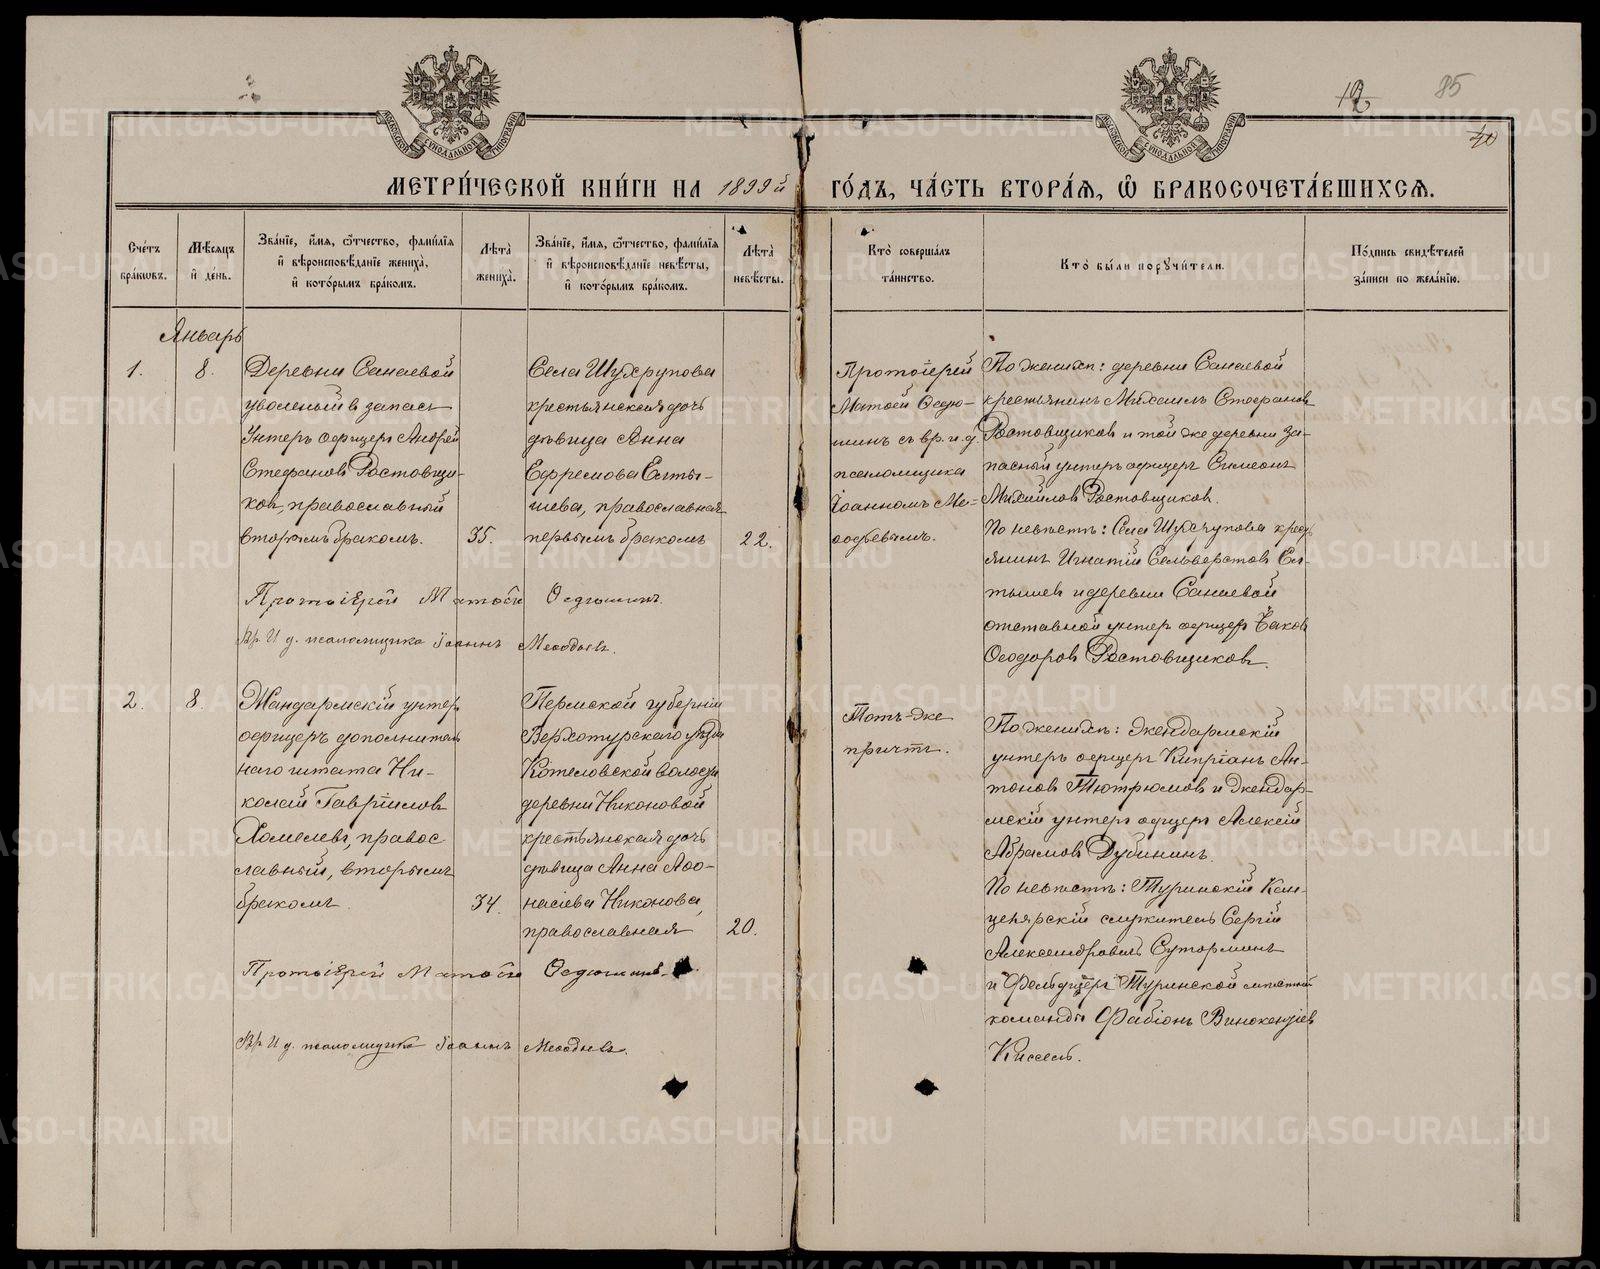 12
85
40
МЕТРИ́ЧЕСКОЙ КНИ́ГИ НА 1899й ГО́ДЪ, ЧА́СТЬ ВТОРА́Я, Ѡ БРАКОСОЧЕТА́ВШИХСЯ.
Сче́тъ бра́ковъ.
Мѣ́сяцъ и҆ де́нь.
Зва́нїе, и҆́мя, ѻ҆́тчество, фами́лїя
и҆ вѣроисповѣ́данїе жениха̀,
и҆ кото́рымъ бра́комъ.
Лѣта̀ жениха̀.
Зва́нїе, и҆́мя, ѻ҆́тчество, фами́лїя
и҆ вѣроисповѣ́данїе невѣ́сты,
и҆ кото́рымъ бра́комъ.
Лѣта̀ невѣ́сты.
Кто̀ соверша́лъ та́инство.
Кто̀ бы́ли поручи́тели.
По́дпись свидѣ́телей за́писи по жела́нїю.
Январь
1.
8.
Деревни Санаевой
уволеный в запасъ
Унтеръ офицеръ Андрей
Стефановъ Ростовщи-
ковъ, православный
вторымъ бракомъ.
35.
Села Шухрупова
крестьянская дочь
дѣвица Анна
Ефремова Елты-
шева, православная
первымъ бракомъ
22.
Протоіерей
Матѳей Ѳедю-
шинъ съ вр. и. д.
псаломщика
Іоанномъ Ме-
ѳодьевымъ.
По женихѣ: деревни Санаевой
крестьянинъ Михаилъ Стефановъ
Ростовщиковъ и той же деревни за-
пасный унтеръ офицеръ Симеонъ
Михайловъ Ростовщиковъ.
По невѣстѣ: Села Шухрупова крест-
янинъ Игнатій Сельверстовъ Ел-
тышевъ и деревни Санаевой
отставной унтеръ офицеръ Іаковъ
Ѳеодоровъ Ростовщиковъ.
Протоіерей Матѳей Ѳедюшинъ.
Вр. И д. псаломщика Іоаннъ Меѳодьевъ.
2.
8.
Жандармскій унтеръ
офицеръ дополнитель
наго штата Ни-
колай Гавріиловъ
Хомелевъ, правос
лавный, вторымъ
бракомъ.
34.
Пермской губерніи
Верхотурскаго уѣзда
Котеловской волости
деревни Никоновой
крестьянская дочь
дѣвица Анна Аѳо-
насіева Никонова,
православная
20.
Тотъ-же
причтъ.
По женихѣ: жандармскій
унтеръ офицеръ Кипріанъ Ан-
тоновъ Тютрюмовъ и жандар-
мскій унтеръ офицеръ Алексій
Абрамовъ Дубининъ.
По невѣстѣ: Туринскій Кан-
целярскій служитель Сергій
Александровичъ Сутормінъ
и Фельдшеръ Туринской мѣстной
команды Фабіонъ Винокентіевъ
Киссель.
Протоіерей Матѳей Ѳедюшинъ.
Вр. И д. псаломщика Іоаннъ Меѳодьевъ.
METRIKI.GASO-URAL.RU